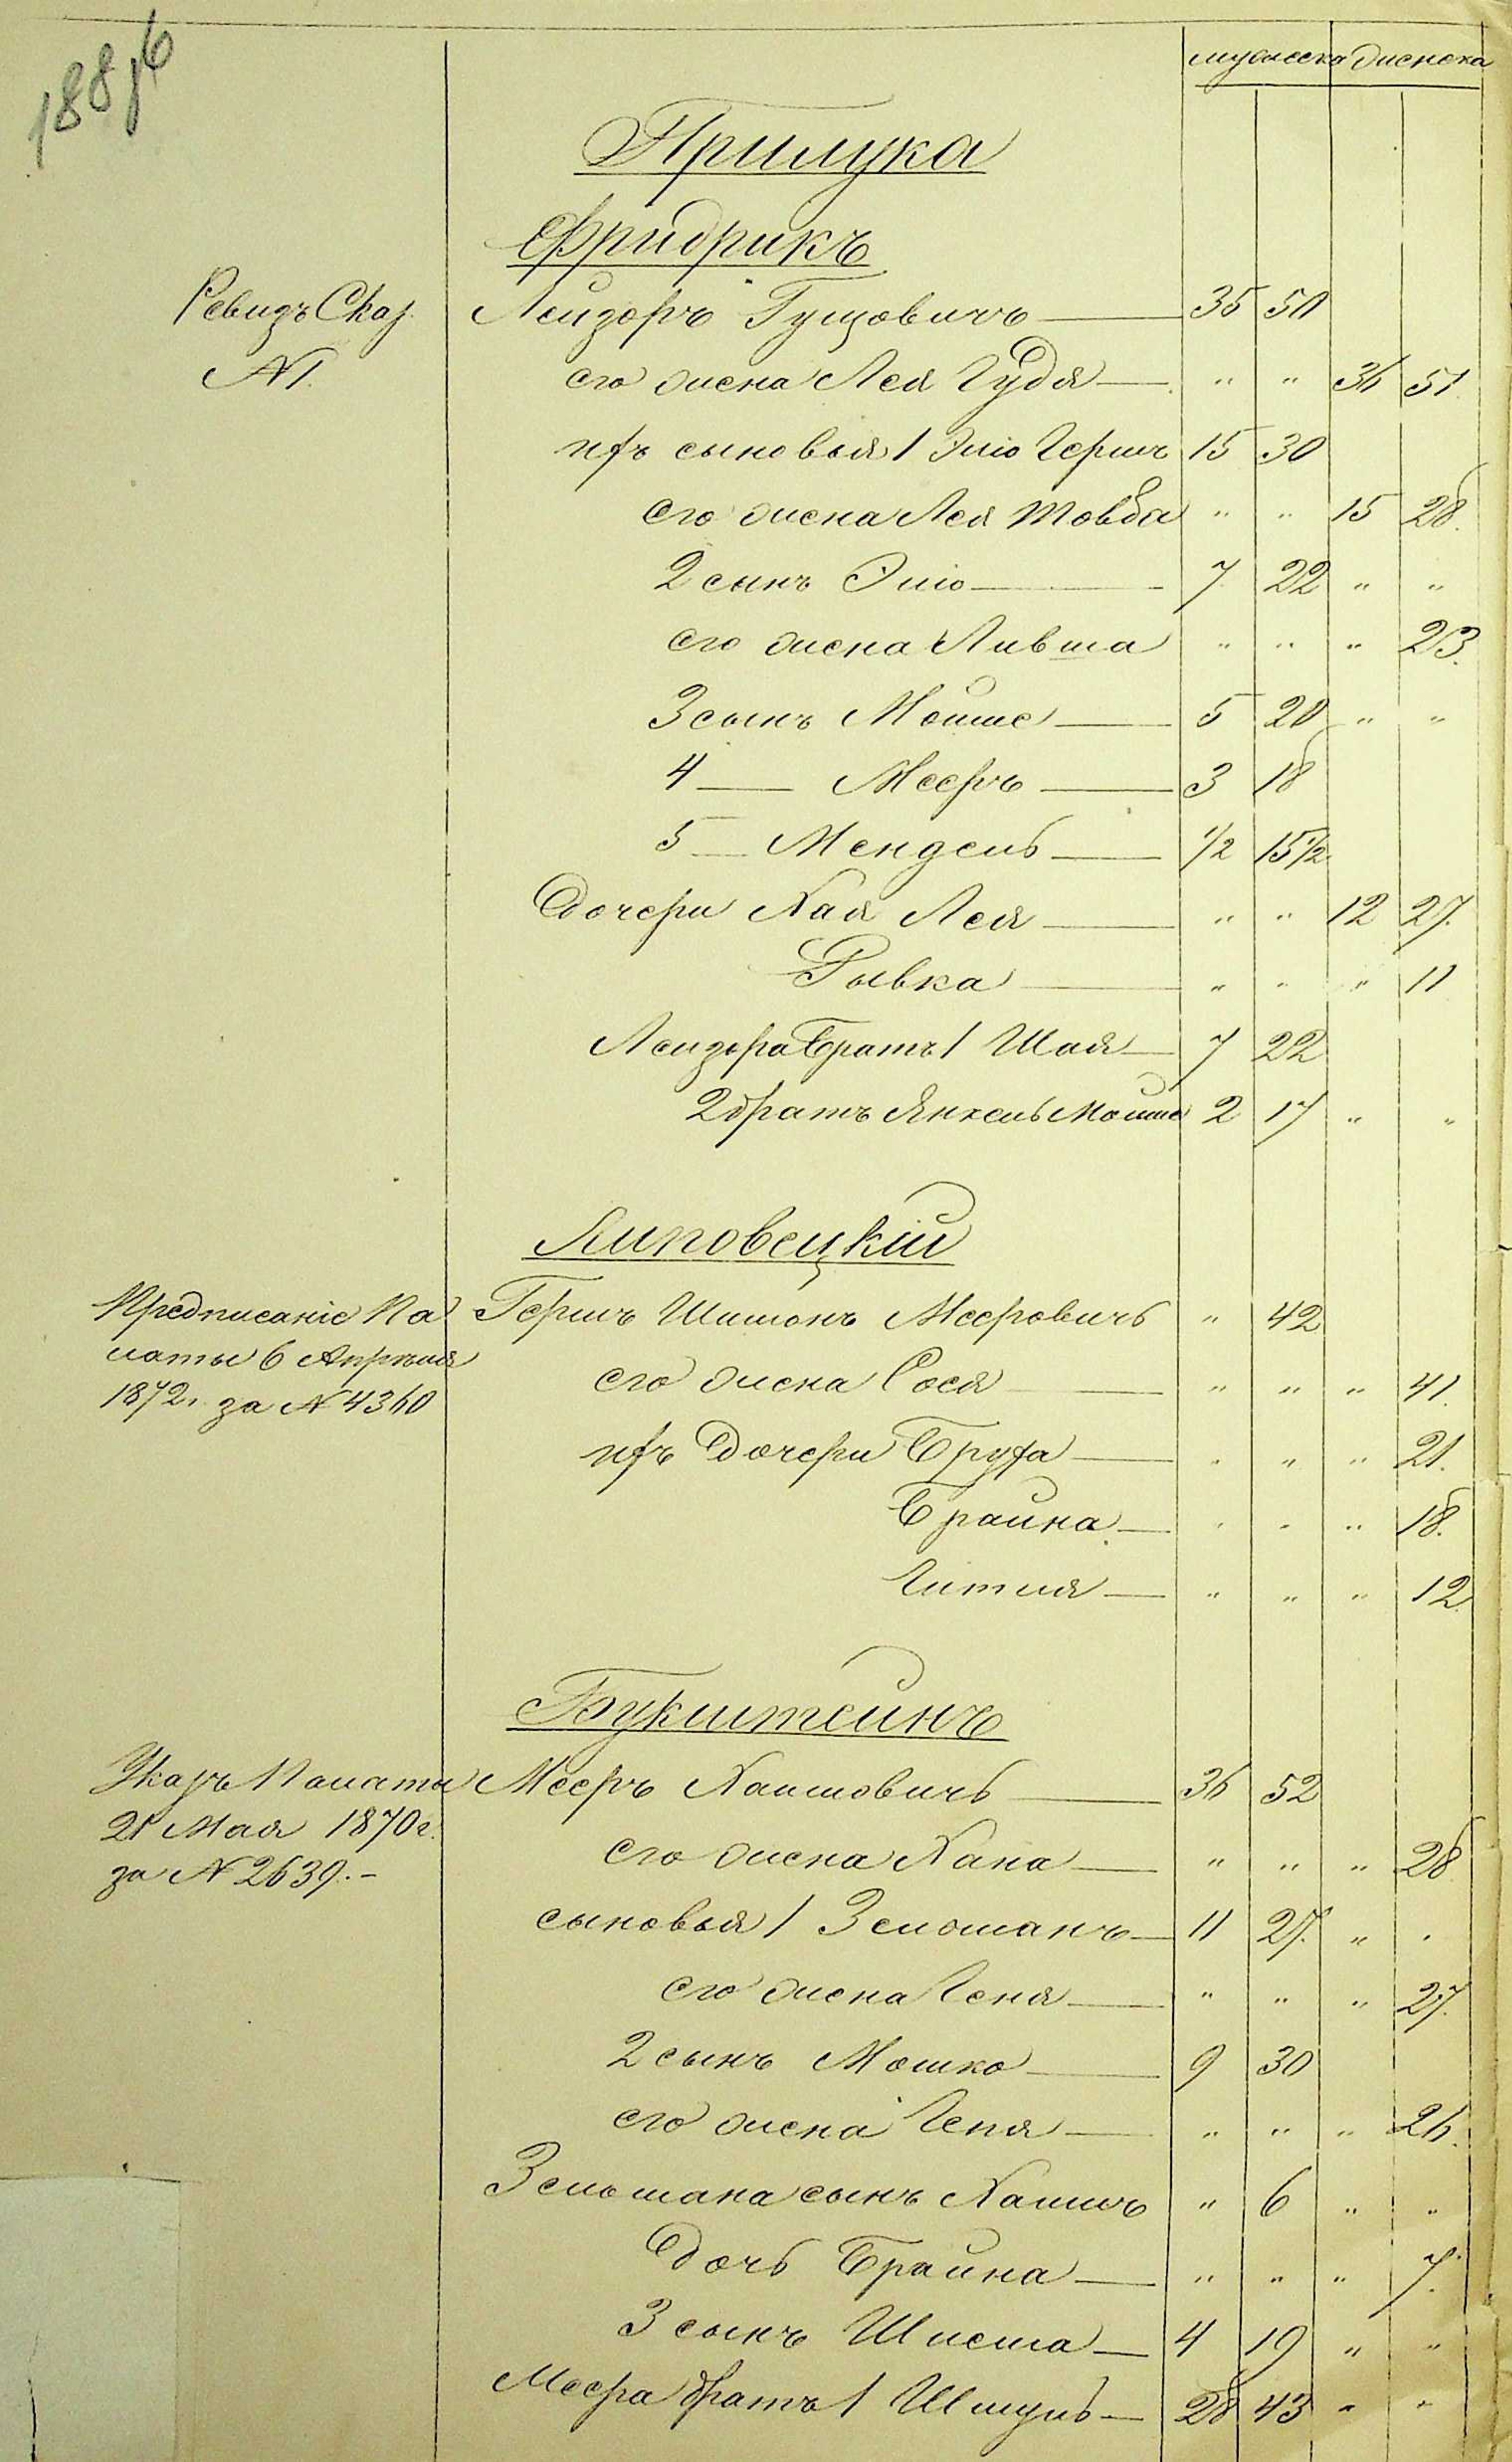 188 6
мужеска женска
Прилука
Фридрикъ
Ревизъ Сказ. Лейзоръ Гущовичъ 35 50
№ 1. его жена Лея Гудя " " 36 51.
ихъ сыновья 1 Элiо Гершъ 15 30
его жена Лея Товба " " 15 28.
2 сынъ Элiо 7 22 " "
его жена Ливша " " " 23.
3 сынъ Мойше 5 20 " "
4 — Мееръ 3 18
5 — Мендель 1/2 15 1/2
Дочери Хая Лея " " 12 27.
Рывка " " " 11
Лейзора братъ 1 Шая 7 22
2 братъ Янкель Мойше 2 17 " "
Липовецкiй
Предписанiе Па Гершъ Шимонъ Мееровичъ " 42
латы 6 Апрѣля его жена Сося " " " 41.
1872г. за № 4360
ихъ дочери Бруха " " " 21.
Брайна " " " 18.
Гитля " " " 12.
Букштейнъ
Указъ Палаты Мееръ Хаимовичъ 36 52
21 Мая 1870 г. его жена Хана " " " 28
за № 2639.-
сыновья 1 Зельманъ 11 27. " "
его жена Геня " " " 27.
2 сынъ Мошко 9 30
его жена Геня " " " 26.
Зельмана сынъ Хаимъ " 6 " "
дочь Брайна " " " 7.
3 сынъ Шлема 4 19 " "
Меера братъ 1 Шмуль 28 43 " "